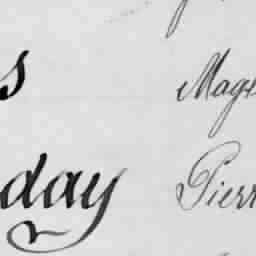 s Mag
day Pierr